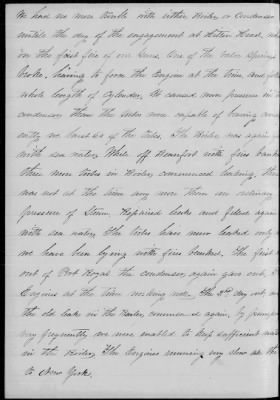 We had no more trouble with either Boiler or Condenser
untill the day of the engagement at Hilton Head, when
on the first fire of our Guns, one of the valve springs
broke, having to form the Engine at the time and
whole length of Cylinder, It caused more pressure in the
condenser than the tubes were capable of bearing
with sea water, While off Beaufort with fires banked
three more tubes in Boiler, commenced leaking, there
was not at the time any more than an ordinary
pressure of Steam, Repaired leaks and filled again
with sea water, The tubes have never leaked only
we have been lying with fires banked. The first
out of Port Royal the condenser, again gave out,
Engines at the time working well, The 2nd day out,
the old leaks in the Boiler, commenced again, by pumping
very frequently we were enabled to keep sufficient water
in the Boiler, The Engines running very slow all the
to New York.